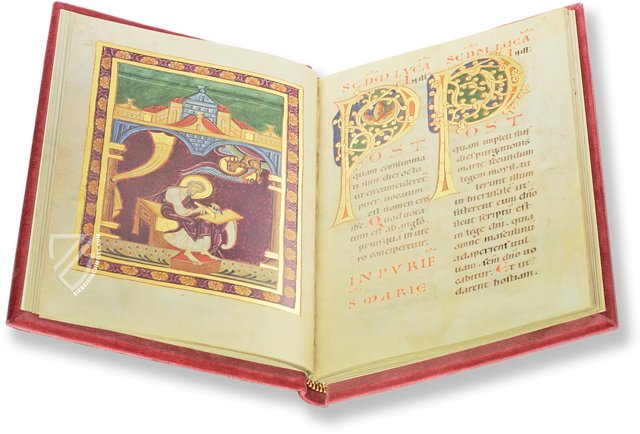 SCDM LVCA
POST
quam consumma
ti sunt dies octo
ut circumcideret
est nomen eius
ihc Quod uoca
tum est ab anglo
prius quam in ute
ro conciperetur
IN PVRIF
S MARIE
SCDM LVCA
POST
quam impleti sunt
dies purgationis
marie secundum
legem moysi tu
lerunt illum
in hierusale ut
sisterent eum dno
sicut scriptu est
in lege dni quia
omne masculinu
adaperiens uul
uam scm dno uo
cabitur Et ut
darent hostiam